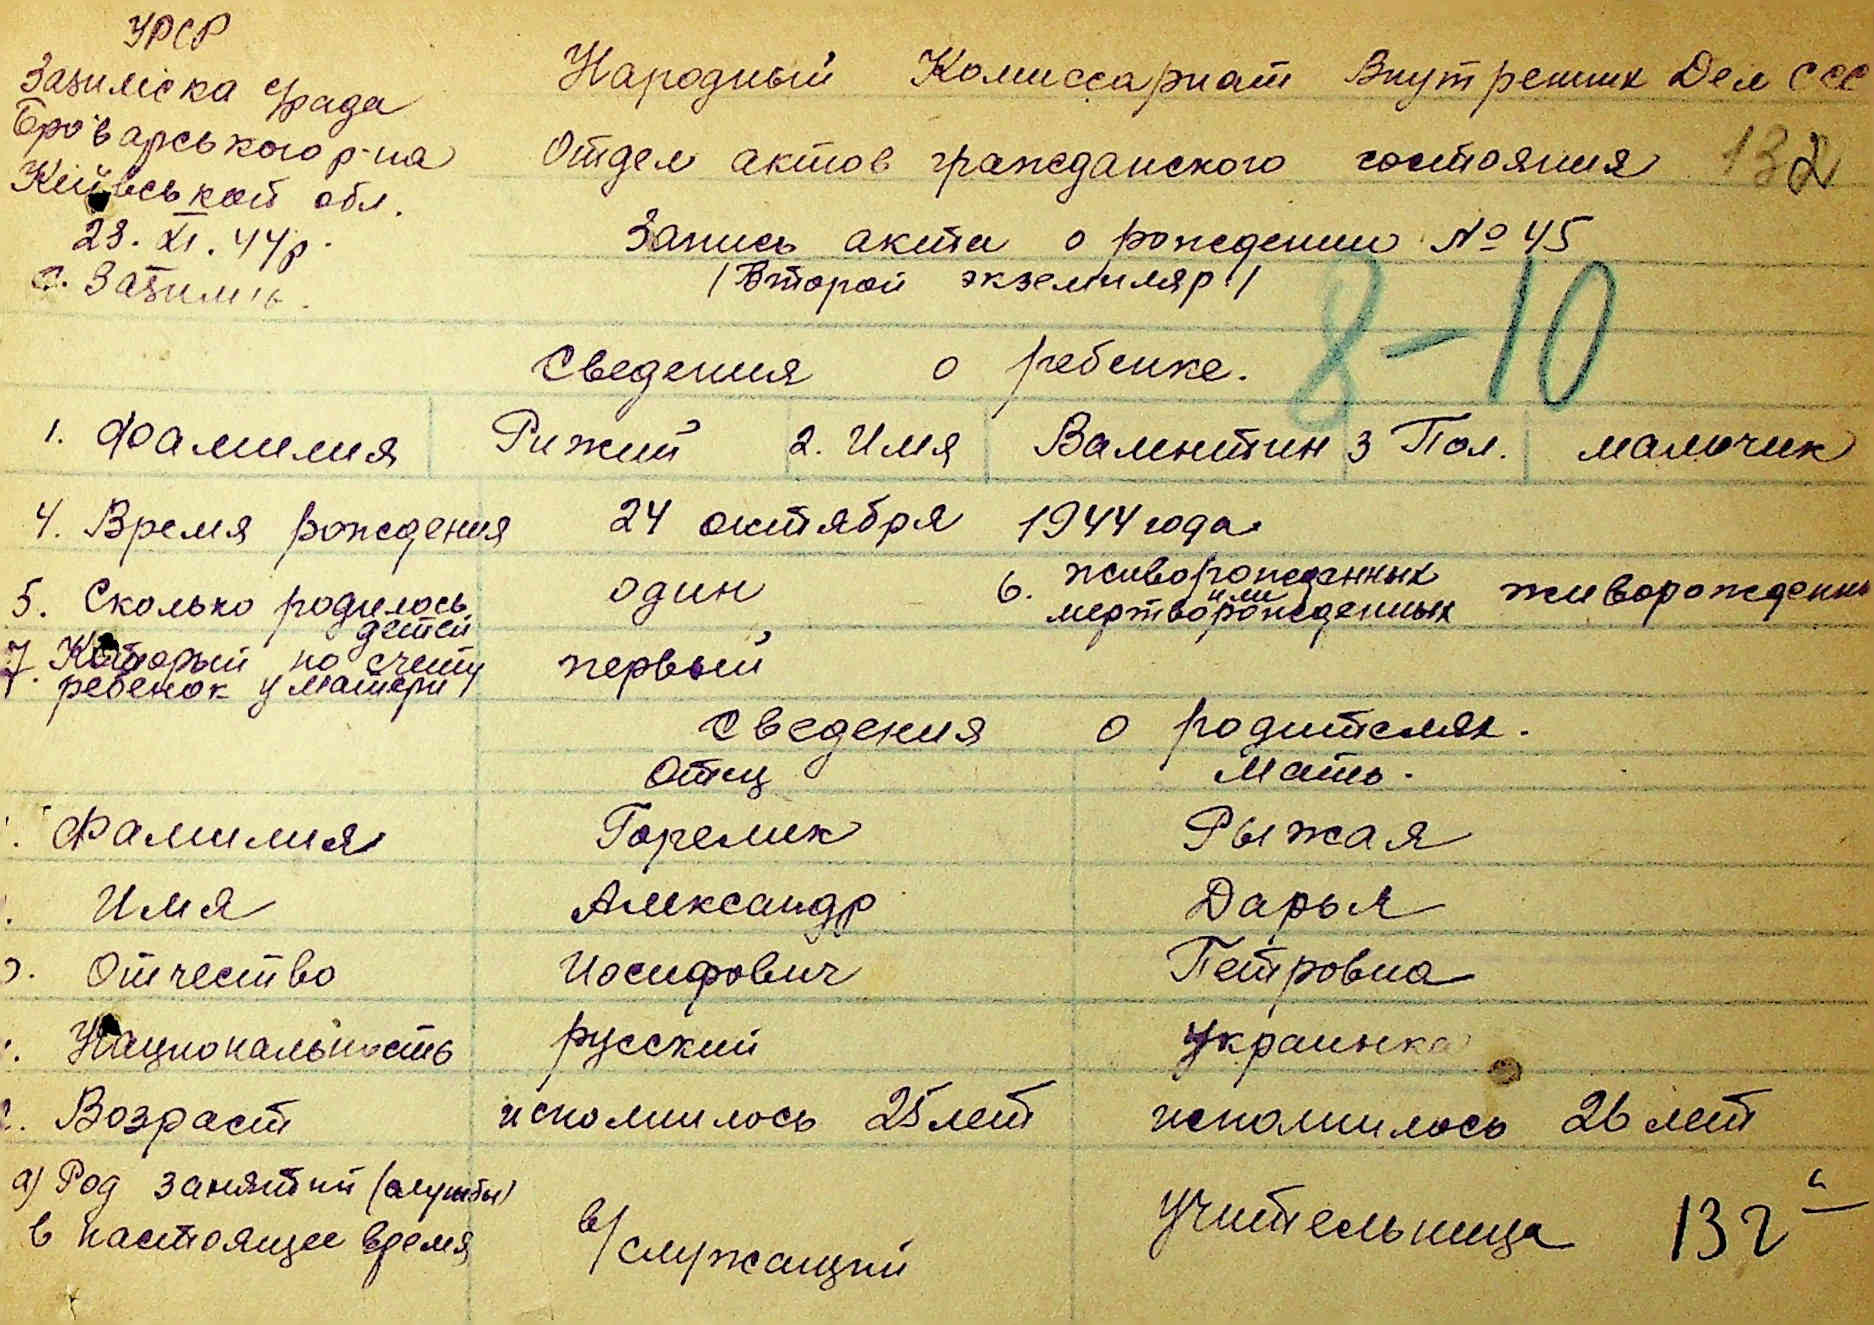 УРСР
Зазимська с/рада
Броварського р-на
Київської обл.
23. XI. 44 р.
с. Зазим'є.
Народный Комиссариат Внутренних Дел ССС
Отдел актов гражданского состояния 132
Запись акта о рождении № 45
/Второй экземпляр/
8-10
Сведения о ребенке.
1. Фамилия Рижий 2. Имя Валентин 3 Пол. мальчик
4. Время рождения 24 октября 1944 года.
5. Сколько родилось детей один 6. живорожденных или мертворожденных живорожденн
7. Который по счету ребенок у матери первый
Сведения о родителях.
Отец Мать.
Фамилия Горелик Рыжая
Имя Александр Дарья
Отчество Иосифович Петровна
Национальность русский украинка
Возраст исполнилось 25 лет исполнилось 26 лет
а) Род занятий (службы) в настоящее время в/служащий учительница 132